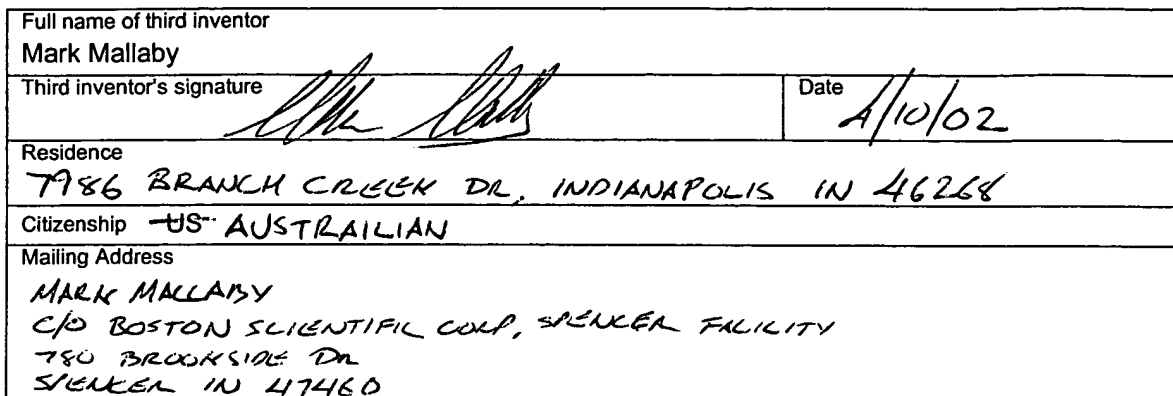 Full name of third inventor
Mark Mallaby
Third inventor's signature
Date 4/10/02
Residence
7986 BRANCH CREEK DR, INDIANAPOLIS IN 46268
Citizenship US AUSTRAILIAN
Mailing Address
MARK MALLABY
C/O BOSTON SCIENTIFIC CORP, SPENCER FACILITY
780 BROOKSIDE DR
SPENCER IN 47460